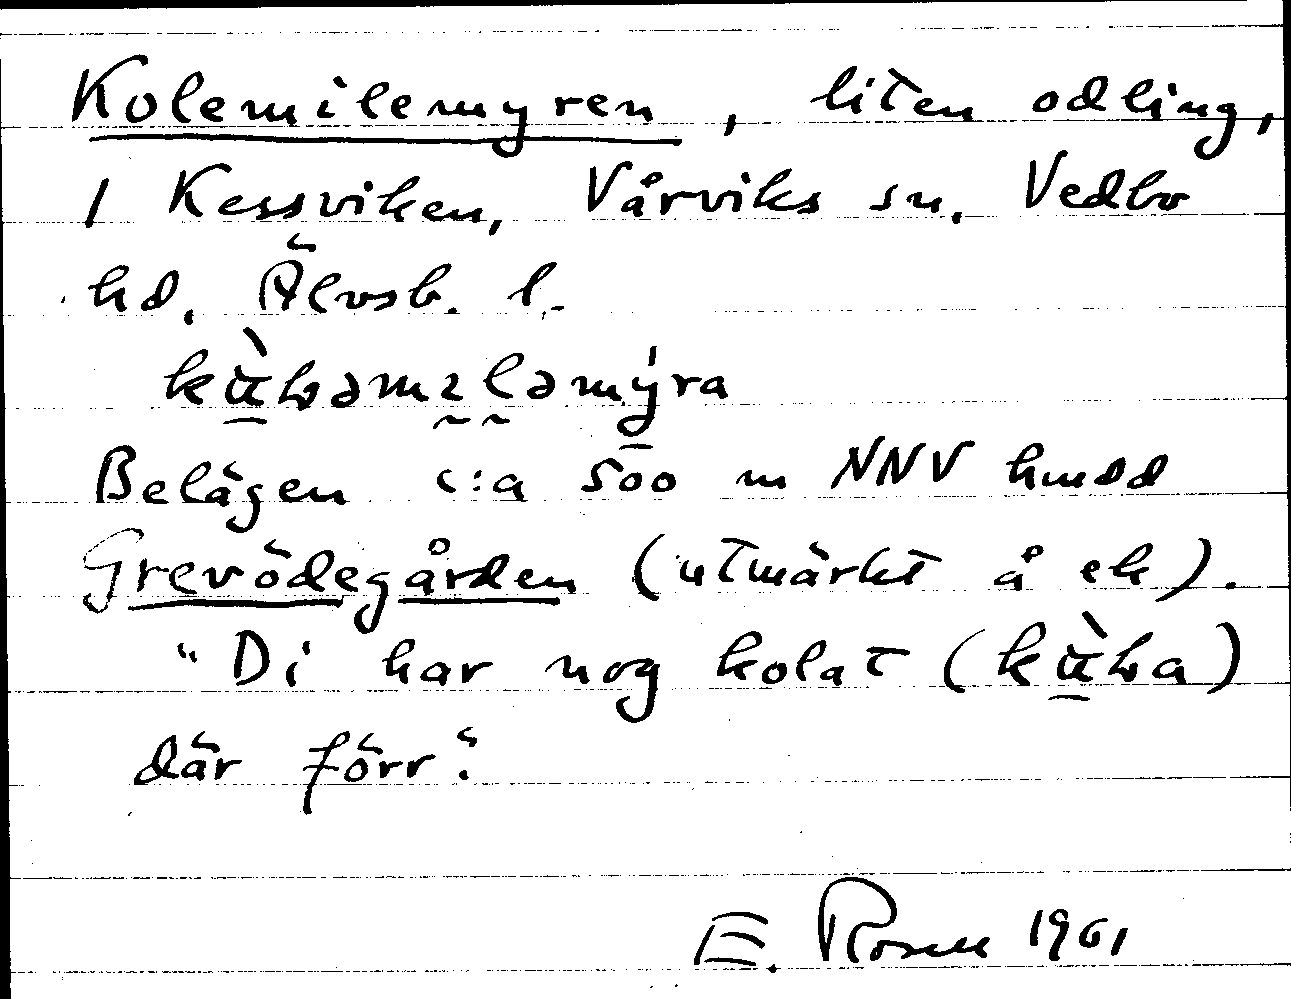 Kolemilemyren, liten odling,
1 Kessviken, Vårviks sn. Vedbo
hd. Älvsb. l.
Belägen c:a 500 m NNV huvud
Grevödegården (utmärkt å ek).
"Di har nog kolat
där förr".
E. Rosell 1961